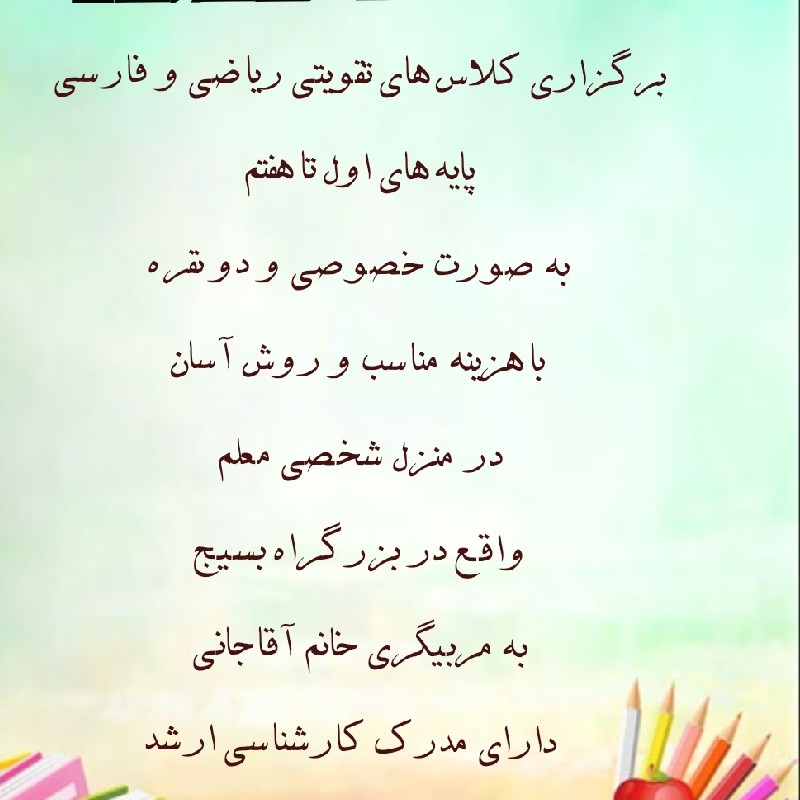 برگزاری کلاس‌های تقویتی ریاضی و فارسی
پایه های اول تا هفتم
به صورت خصوصی و دو نفره
با هزینه مناسب و روش آسان
در منزل شخصی معلم
واقع در بزرگراه بسیج
به مربیگری خانم آقاجانی
دارای مدرک کارشناسی ارشد